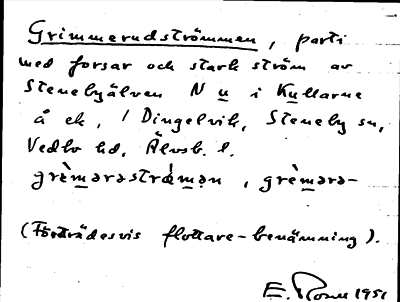 Grimmerudströmmen, parti
med forsar och stark ström av
Stenebyälven N u i Kullarne
å ek, / Dingelvik, Steneby sn,
Vedbo hd, Älvsb. l.
grèmərəstrǿmən, grèmərə-
(Företrädesvis flottare-benämning).
E. 1951